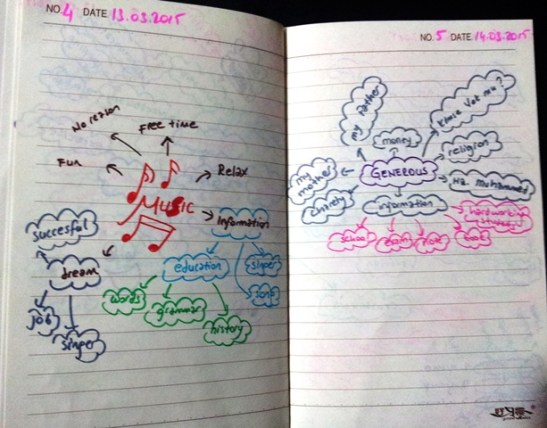 NO. 4 DATE 13.03.2015
No reason
Free time
Fun
Relax
MUSIC
Information
succesful
dream
education
singer
song
job
singer
words
grammar
history
NO. 5 DATE 14.03.2015
my father
money
religion
my mother
GENEROUS
Hz. muhammed
charity
information
hardworking
school
exam
book